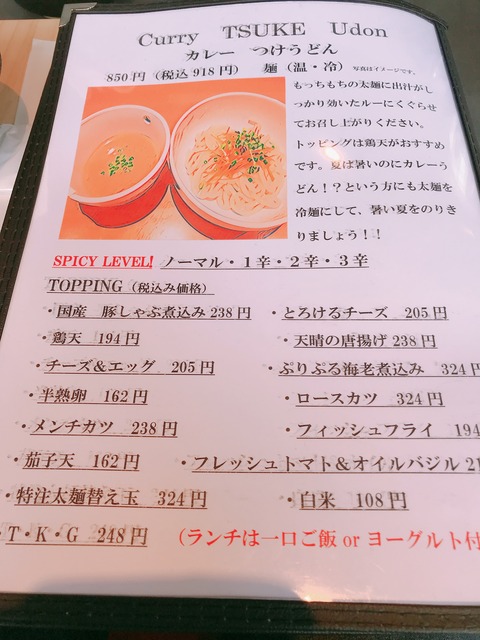 Curry TSUKE Udon
カレー つけうどん
850円（税込918円） 麺（温・冷） 写真はイメージです。
もっちもちの太麺に出汁がし
っかり効いたルーにくぐらせ
てお召し上がりください。
トッピングは鶏天がおすすめ
です。夏は暑いのにカレーう
どん！？という方にも太麺を
冷麺にして、暑い夏をのりき
りましょう！！
SPICY LEVEL! ノーマル・1辛・2辛・3辛
TOPPING（税込み価格）
・国産 豚しゃぶ煮込み 238円 ・とろけるチーズ 205円
・鶏天 194円 ・天晴の唐揚げ 238円
・チーズ＆エッグ 205円 ・ぷりぷる海老煮込み 324円
・半熟卵 162円 ・ロースカツ 324円
・メンチカツ 238円 ・フィッシュフライ 194
・茄子天 162円 ・フレッシュトマト＆オイルバジル 21
・特注太麺替え玉 324円 ・白米 108円
・T・K・G 248円 （ランチは一口ご飯 or ヨーグルト付